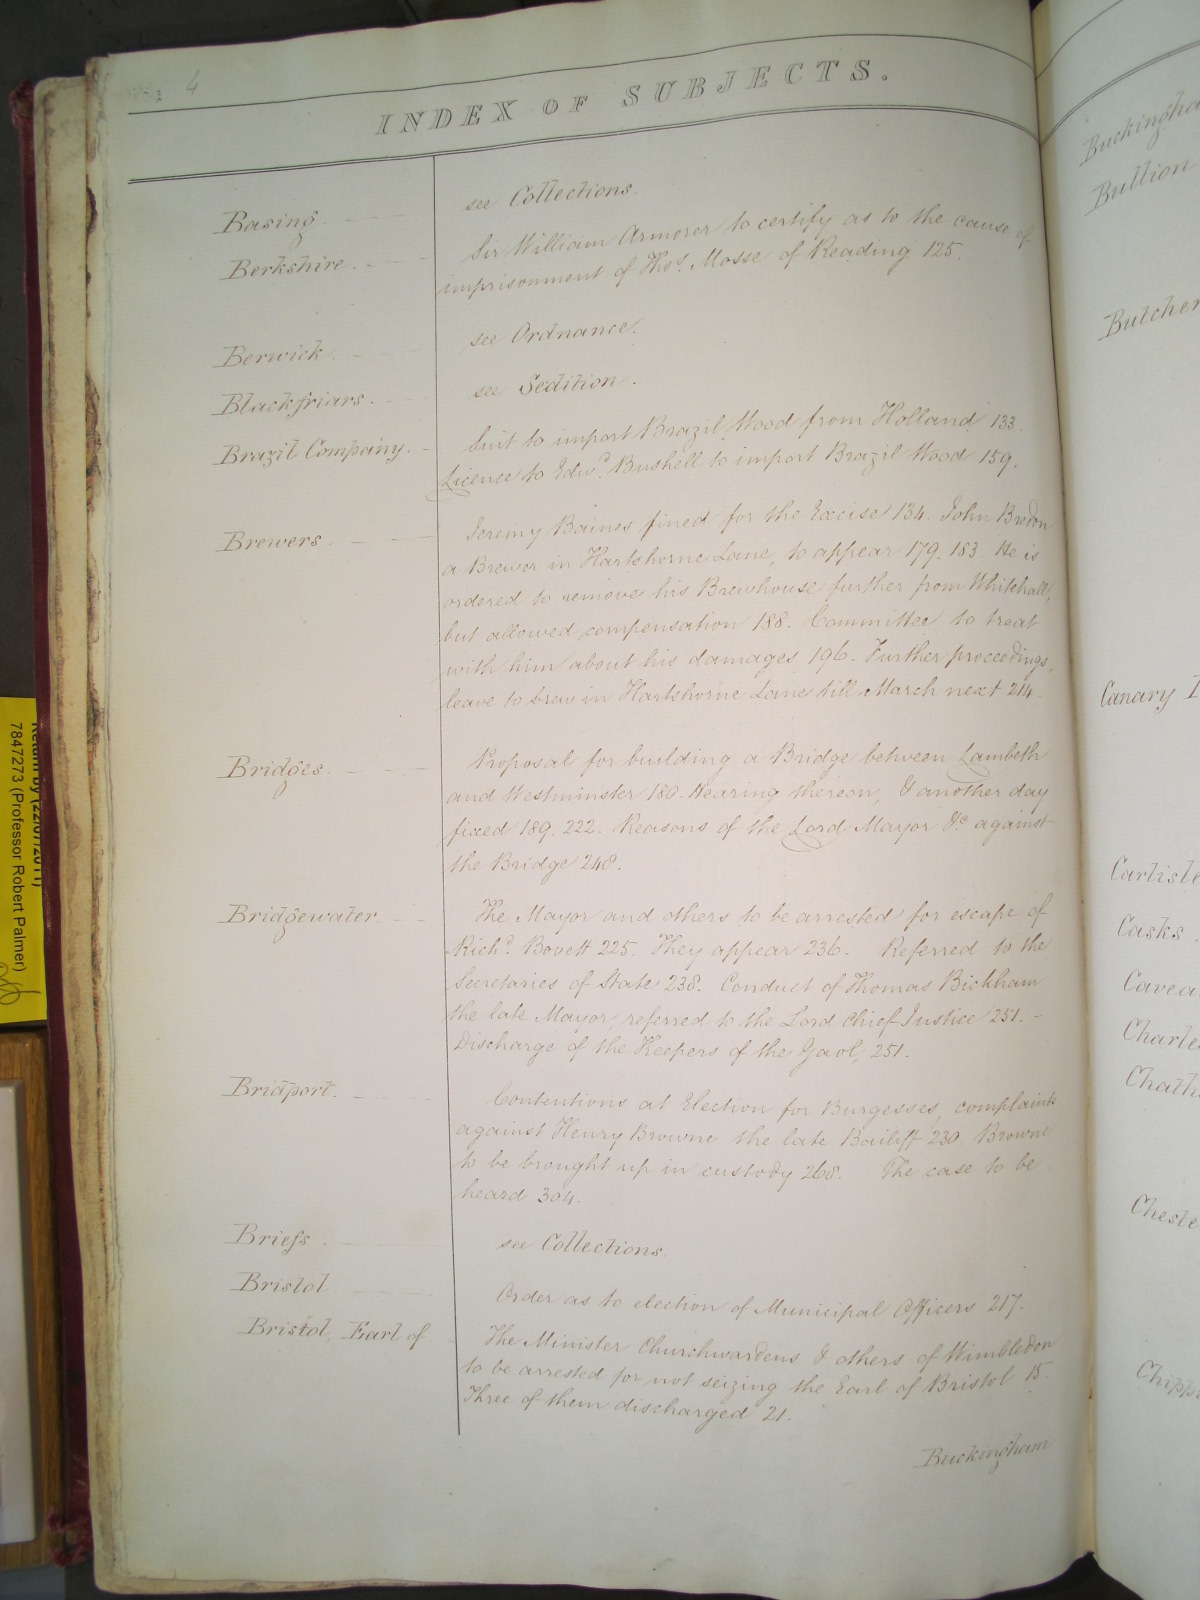 4
INDEX OF SUBJECTS.
Basing. see Collections.
Berkshire. Sir William Armorer to certify as to the cause of
imprisonment of Thos. Mosse of Reading 125.
Berwick. see Ordnance.
Blackfriars. see Sedition.
Brazil Company. Suit to import Brazil Wood from Holland 133.
Licence to Edwd. Bushell to import Brazil Wood 159.
Brewers. Jeremy Baines fined for the Excise 134. John Bredon
a Brewer in Hartshorne Lane, to appear 179. 183. He is
ordered to remove his Brewhouse further from Whitehall,
but allowed compensation 188. Committee to treat
with him about his damages 196. Further proceedings,
leave to brew in Hartshorne Lane till March next 214.
Bridges. Proposal for building a Bridge between Lambeth
and Westminster 180. Hearing thereon, & another day
fixed 189. 222. Reasons of the Lord Mayor &c. against
the Bridge 248.
Bridgewater. The Mayor and others to be arrested for escape of
Richd. Bovett 225. They appear 236. Referred to the
Secretaries of State 238. Conduct of Thomas Bickham
the late Mayor, referred to the Lord Chief Justice 251. -
Discharge of the Keepers of the Gaol, 251.
Bridport. Contentions at Election for Burgesses, complaints
against Henry Browne the late Bailiff 230. Browne
to be brought up in custody 268. The case to be
heard 304.
Briefs. see Collections.
Bristol Order as to election of Municipal Officers 217.
Bristol, Earl of The Minister Churchwardens & others of Wimbledon
to be arrested for not seizing the Earl of Bristol 15.
Three of them discharged 21.
Buckingham
Bullion
Butcher
Canary
Carlisle
Casks
Cavea
Charle
Chath
Cheste
Chipp
Return by (22/07/2011)
7847273 (Professor Robert Palmer)